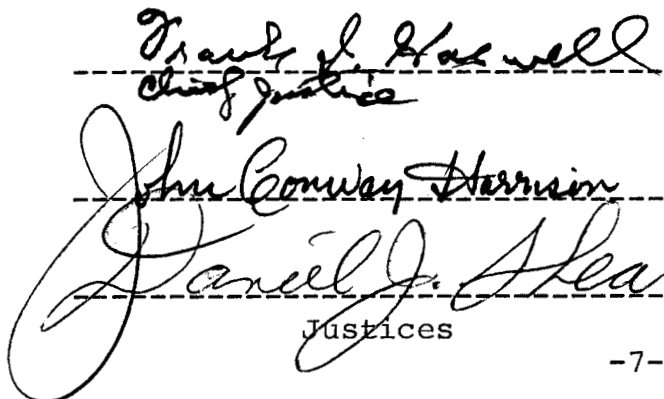 Frank I. Haswell
Chief Justice
John Conway Harrison
Daniel J. Shea
Justices
-7-